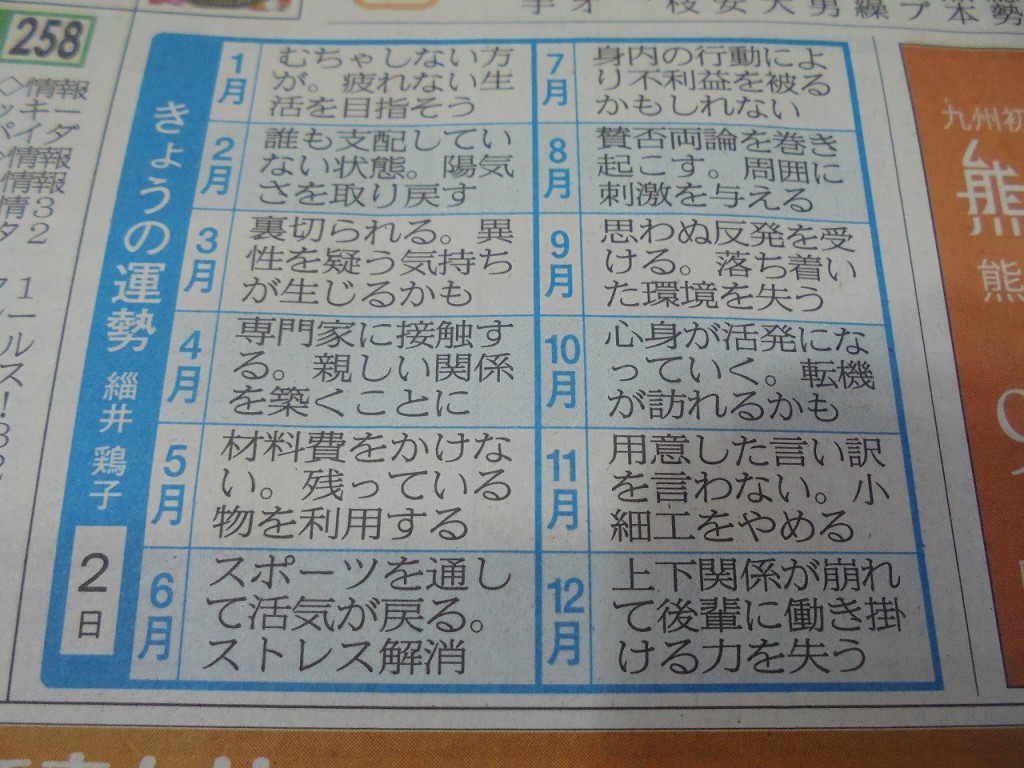 258
情報
ッキー
パイダ
情報
情報
情3
タ2
きょうの運勢
緇井 鶏子
2日
1月
むちゃしない方
が。疲れない生
活を目指そう
2月
誰も支配してい
ない状態。陽気
さを取り戻す
3月
裏切られる。異
性を疑う気持ち
が生じるかも
4月
専門家に接触す
る。親しい関係
を築くことに
5月
材料費をかけな
い。残っている
物を利用する
6月
スポーツを通し
て活気が戻る。
ストレス解消
7月
身内の行動によ
り不利益を被る
かもしれない
8月
賛否両論を巻き
起こす。周囲に
刺激を与える
9月
思わぬ反発を受
ける。落ち着い
た環境を失う
10月
心身が活発にな
っていく。転機
が訪れるかも
11月
用意した言い訳
を言わない。小
細工をやめる
12月
上下関係が崩れ
て後輩に働き掛
ける力を失う
九州初
熊
熊